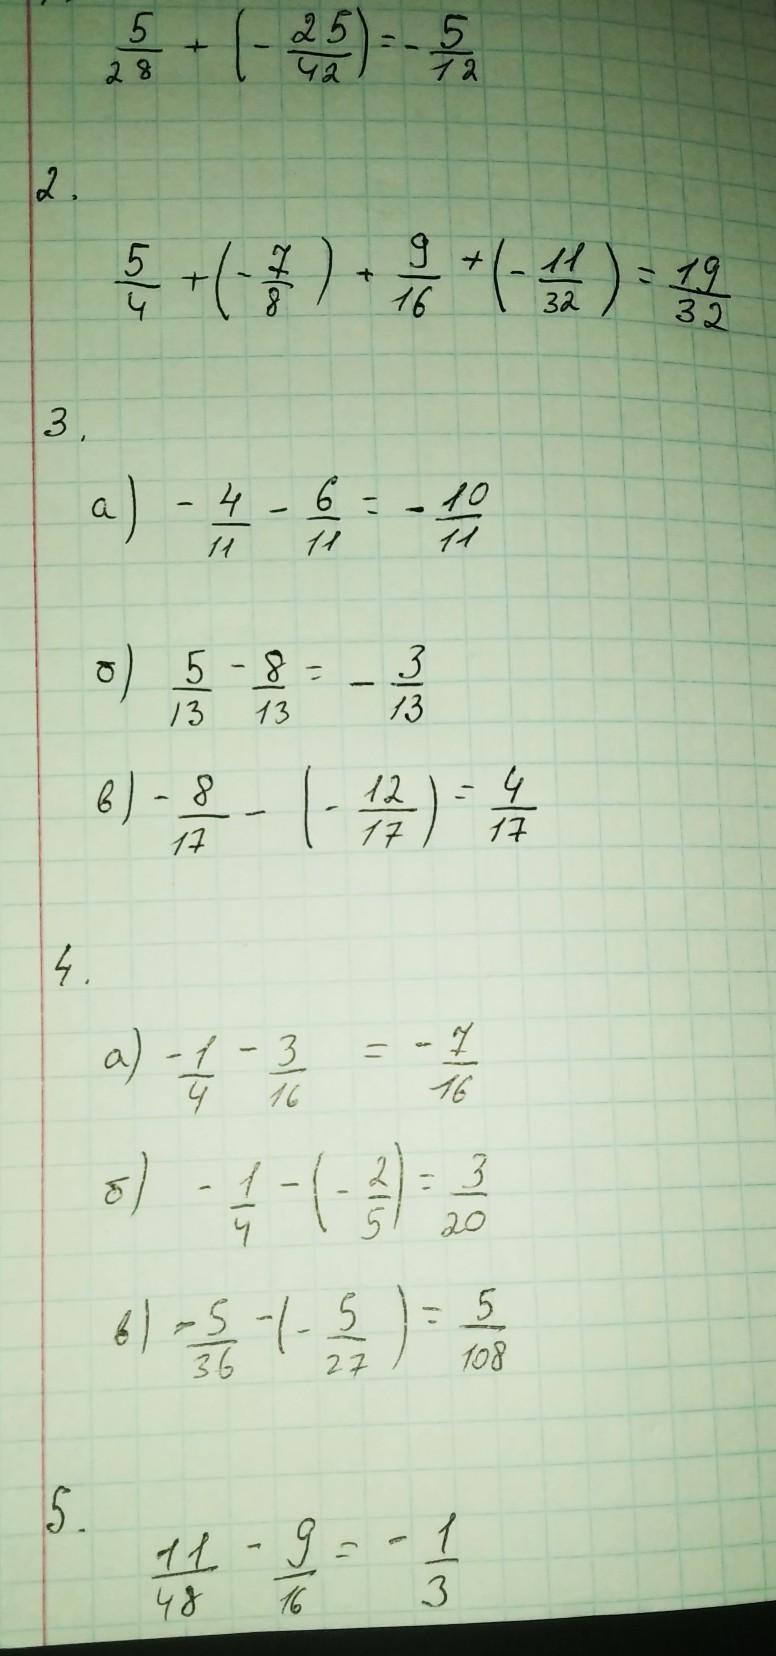 5/28 + (- 25/42) = - 5/12
2.
5/4 + (- 7/8) + 9/16 + (- 11/32) = 19/32
3.
а) - 4/11 - 6/11 = - 10/11
б) 5/13 - 8/13 = - 3/13
в) - 8/17 - (- 12/17) = 4/17
4.
а) - 1/4 - 3/16 = - 7/16
б) - 1/4 - (- 2/5) = 3/20
в) - 5/36 - (- 5/27) = 5/108
5.
11/48 - 9/16 = - 1/3